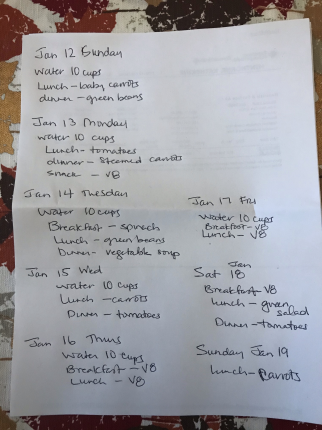 Jan 12 Sunday
Water 10 cups
Lunch - baby carrots
dinner - green beans
Jan 13 Monday
Water 10 cups
Lunch - tomatoes
dinner - Steamed carrots
Snack - V8
Jan 14 Tuesday
Water 10 cups
Breakfast - spinach
Lunch - green beans
Dinner - vegetable soup
Jan 15 Wed
Water 10 cups
Lunch - carrots
Dinner - tomatoes
Jan 16 Thurs
Water 10 cups
Breakfast - V8
Lunch - V8
Jan 17 Fri
Water 10 cups
Breakfast - V8
Lunch - V8
Jan
Sat 18
Breakfast - V8
Lunch - green
salad
Dinner - tomatoes
Sunday Jan 19
Lunch - Carrots